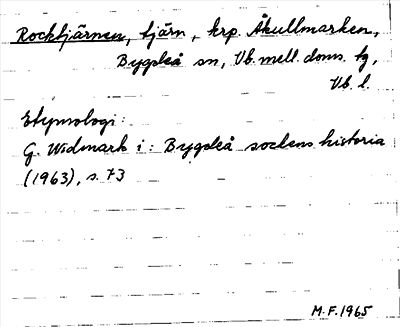 Rocktjärnen, tjärn, krp. Åkullmarken,
Bygdeå sn, Vb. mell. doms. tg,
Vb. l.
Etymologi:
G. Widmark i: Bygdeå sockens historia
(1963), s. 73
M.F. 1965